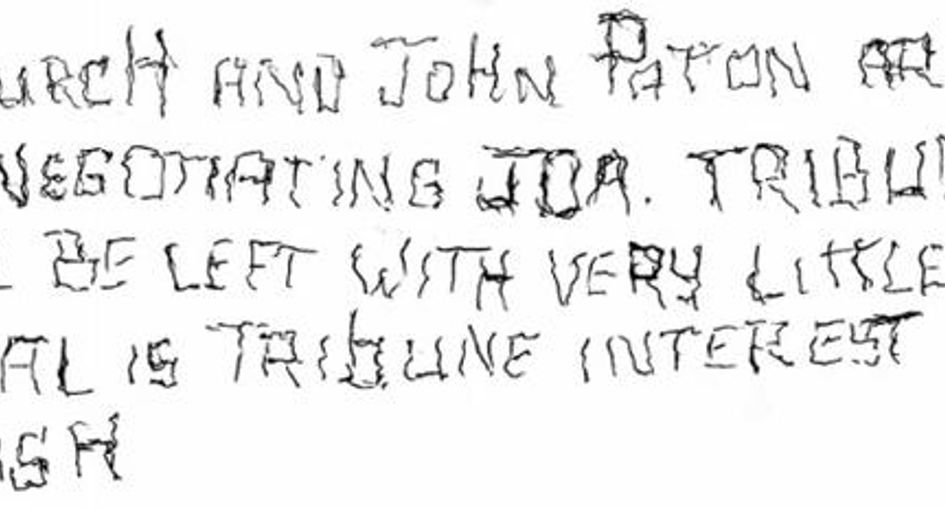 URCH AND JOHN PATON AR
NEGOTIATING JOA. TRIBU
BE LEFT WITH VERY LITTLE
AL IS TRIBUNE INTEREST
SH